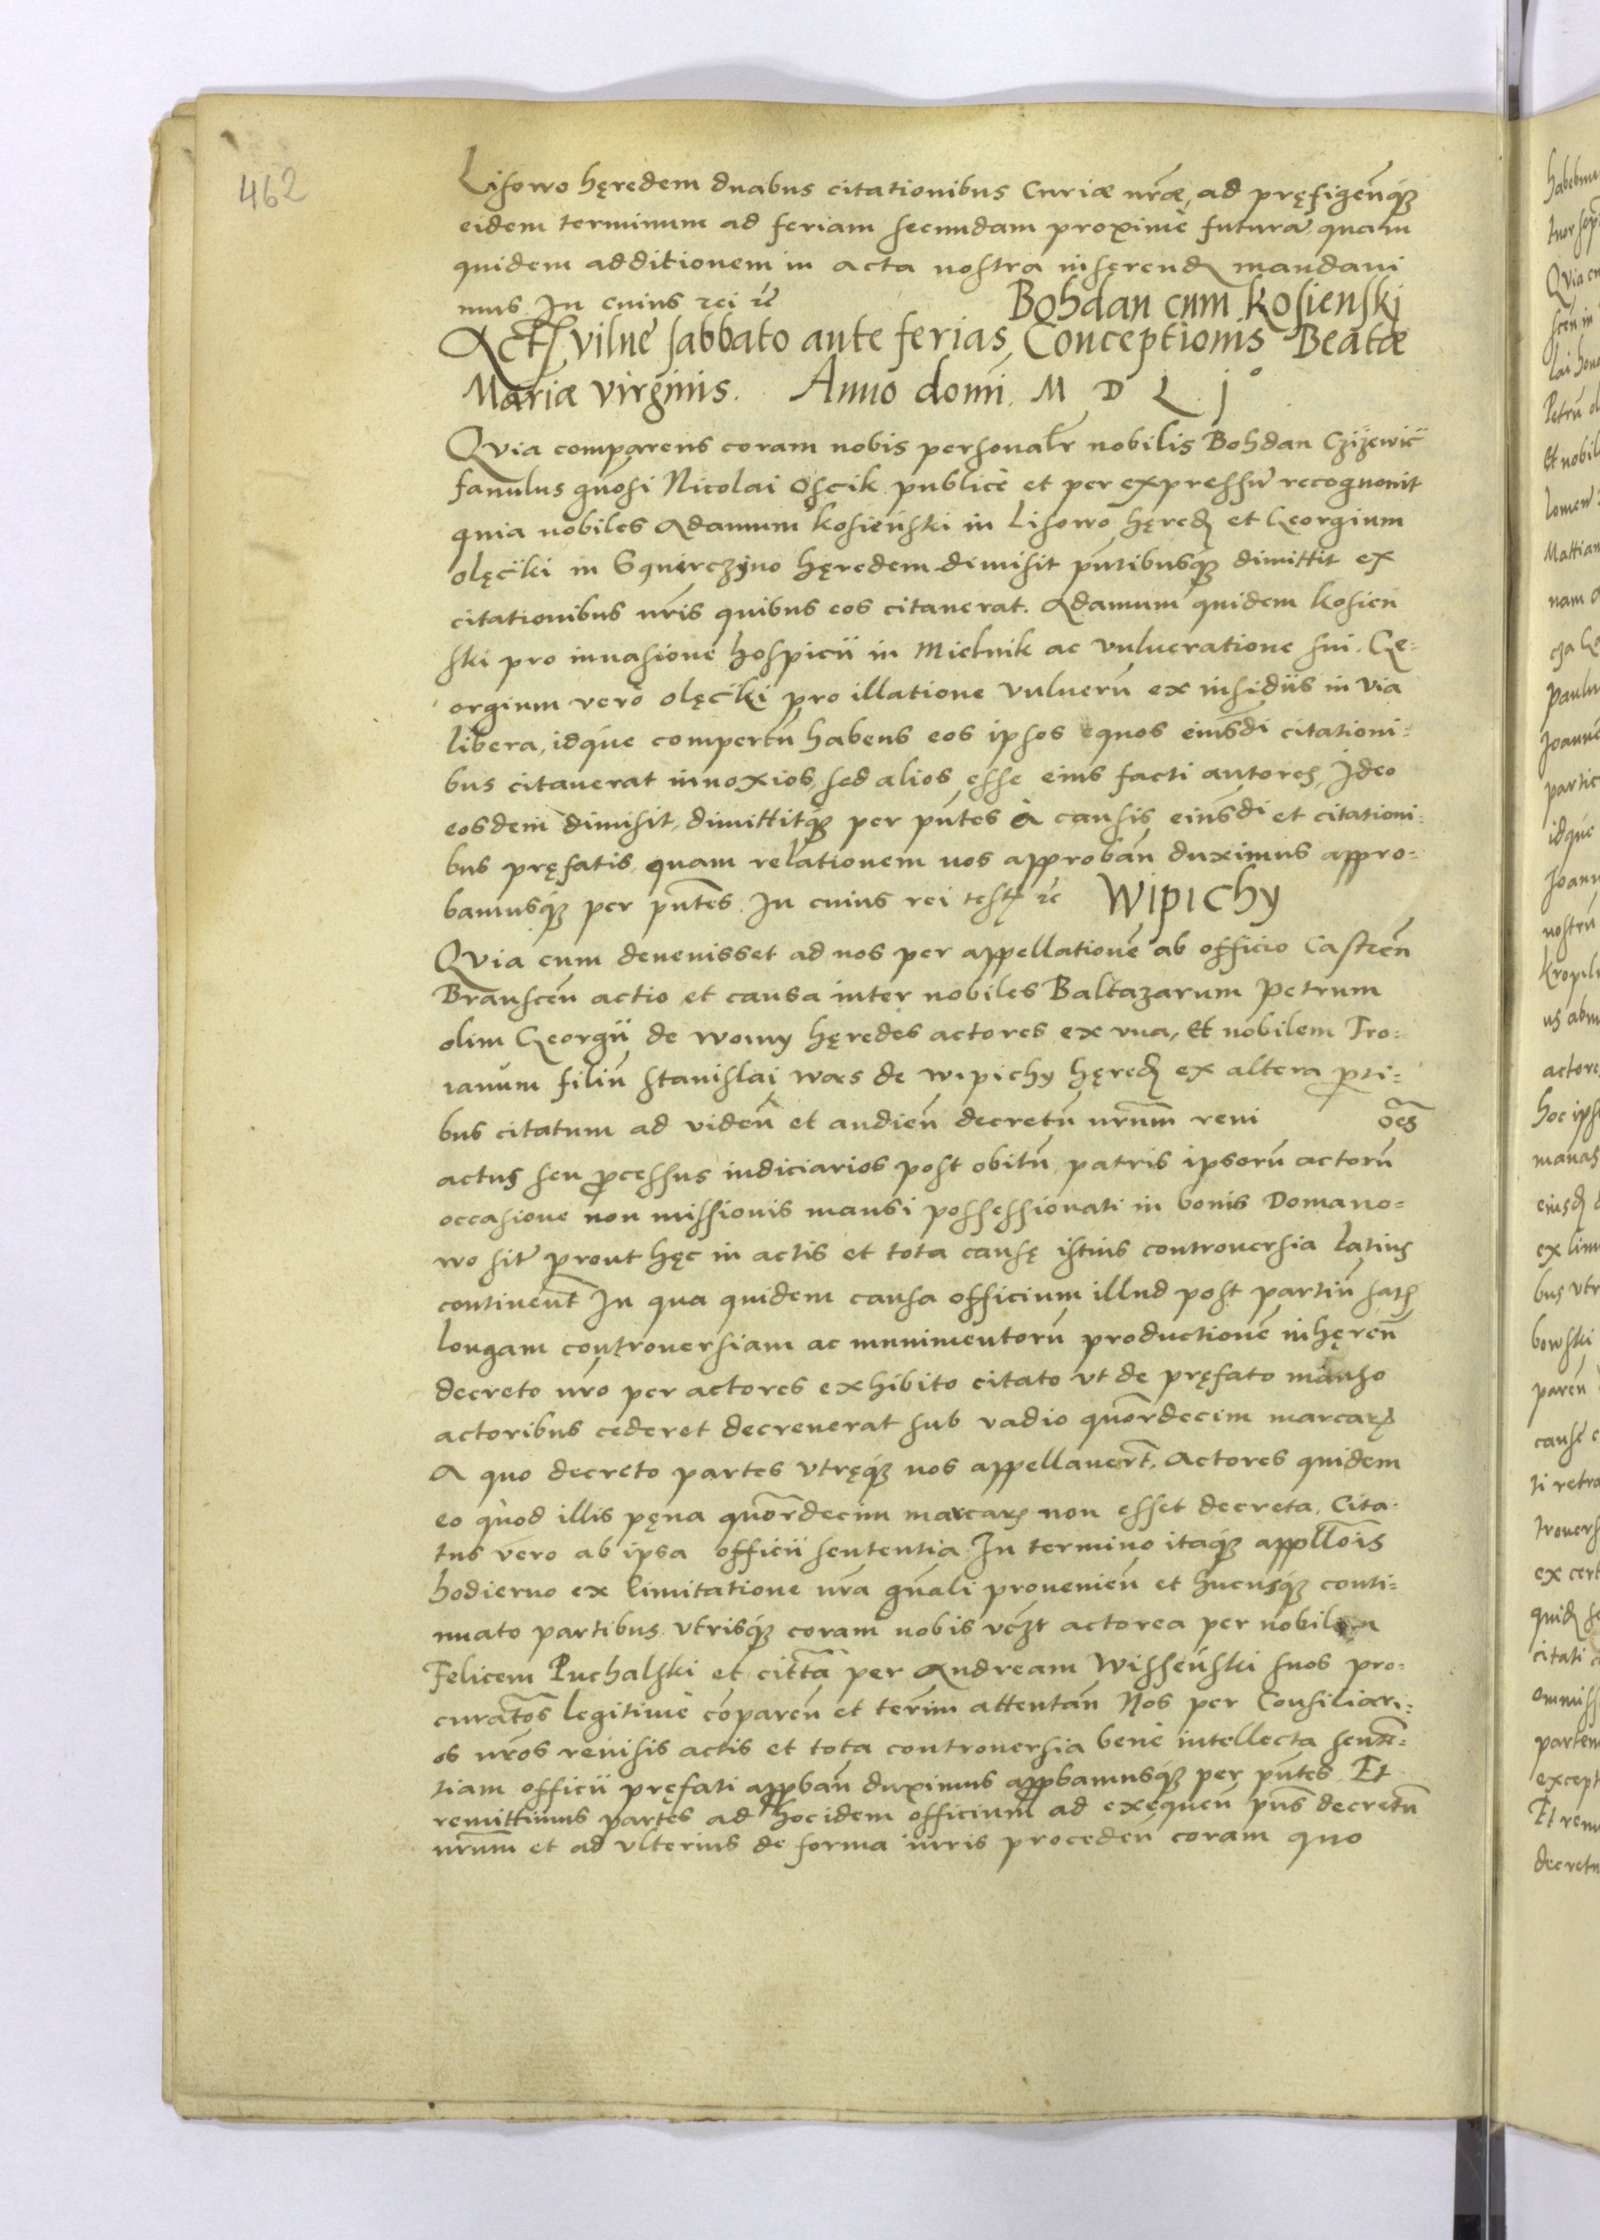 462
Lisowo hęredem duabus citationibus Curiæ nr̃æ, ad pręfigen̄q;
eidem terminum ad feriam secundam proximè futurā, quam
quidem additionem in acta nostra inserend mandavi
mus. In cuius rei &c̄
Bohdan cum Kosienskj
Act Vilnę sabbato ante ferias Conceptionis Beatæ
Mariæ virginis. Anno domi. M D L j°
Qvia comparens coram nobis personalr nobilis Bohdan Czÿżewic̈
famulus gnosi Nicolai Oscik publicè et per expressū recognouit
quia nobiles Adamum Kosieński in Lisowo hęred et Georgium
olęc̈ki in Squirczyno hęredem dimisit pn̄tibusq; dimittit ex
citationibus nr̄is quibus eos citauerat. Adamum quidem Kosien
ski pro inuasione hospicii in Mielnik ac vulneratione sui. Ge-
orgium verò olęc̈ki pro illatione vulnerū ex insidiis in via
libera, idque compertū habens eos ipsos equos eiusdi citationi-
bus citauerat innoxios, sed alios esse eius facti autores, Ideo
eosdem dimisit, dimittitq; per pn̄tes à causis eiusdi et citationi-
bus pręfatis, quam relationem nos approbān duximus appro-
bamusq; per pn̄tes. In cuius rei test &c̄ Wipichy
Qvia cum deuenisset ad nos per appellationē ab officio Castren̄
Branscen̄ actio et causa inter nobiles Baltazarum Petrum
olim Georgii de wowy hęredes actores ex vna, Et nobilem Tro-
ianum filiū Stanislai was de wipichy hęred ex altera pti-
bus citatum ad viden̄ et audien̄ decretū nrm̄ reui oēs
actus seu processus iudiciarios post obitū patris ipsorū actorū
occasione non missionis mansi possessionati in bonis Domano-
wo sitē prout hęc in actis et tota causę istius controuersia latius
continent̄ In qua quidem causa officium illud post partiū satis
longam controuersiam ac munimentorū productionē inhęren̄
decreto nro per actores exhibito citato vt de pręfato manso
actoribus cederet decreuerat sub vadio quordecim marcar
A quo decreto partes vtręq; nos appellauert̄, Actores quidem
eo quod illis pęna quordecim marcar non esset decreta, Cita-
tus vero ab ipsa officii sententia. In termino itaq; appllois
hodierno ex limitatione nra gn̄ali prouenien̄ et hucusq; conti-
nuato partibus vtrisq; coram nobis vczt actorea per nobilem
Felicem Puchalski et citta per Andream Wissenski suos pro-
curat̄os legitimè cōparen̄ et term̄ attentān Nos per Consiliari-
os nr̄os reuisis actis et tota controuersia benè intellecta senn̄-
tiam officii pręfati appbān duximus appbamusq; per pn̄tes. Et
remittimus partes ad hoc idem officium ad exequen̄ pn̄s decretū
nrm̄ et ad vlterius de forma iuris proceden̄ coram quo